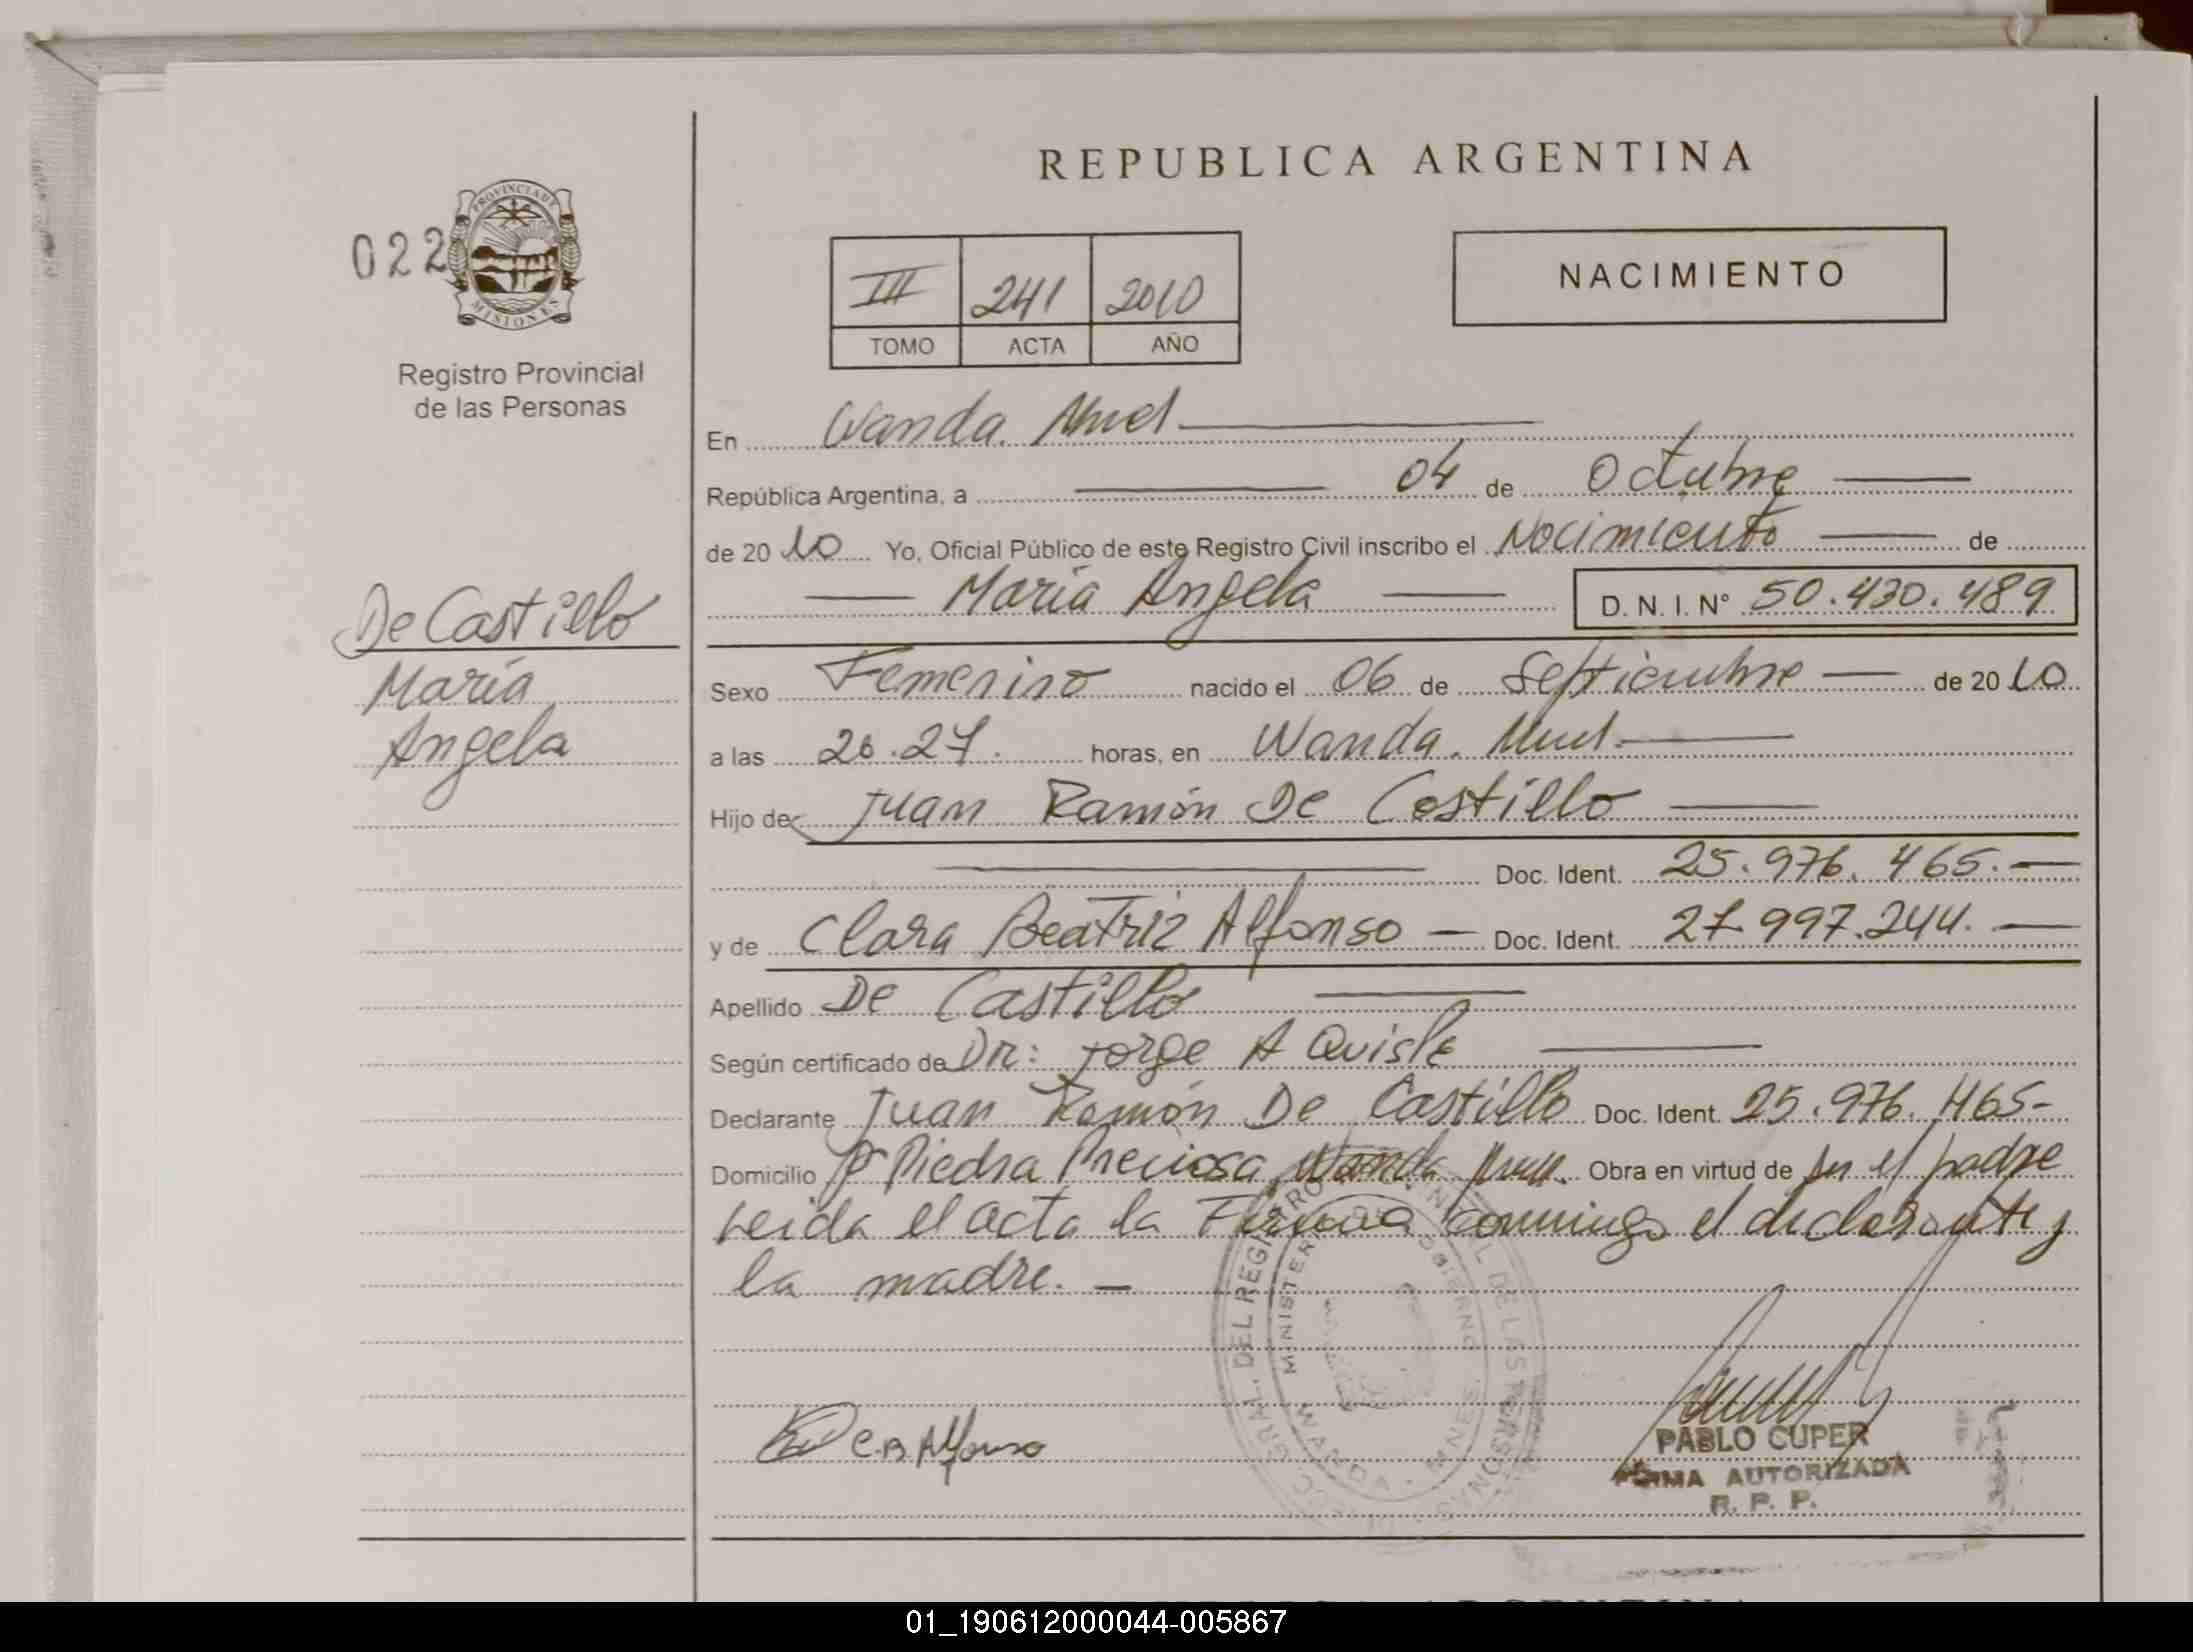 REPUBLICA ARGENTINA
022
PROVINCIA DE
MISIONES
Registro Provincial
de las Personas
III 241 2010
TOMO ACTA AÑO
NACIMIENTO
En Wanda. Mnes
República Argentina, a 04 de Octubre
de 20 10 Yo, Oficial Público de este Registro Civil inscribo el Nacimiento de
María Angela D. N. I. N° 50.430.489
De Castillo
María
Angela
Sexo Femenino nacido el 06 de Septiembre de 20 10
a las 20.27. horas, en Wanda. Mnes.
Hijo de Juan Ramón De Castillo
Doc. Ident. 25.976.465.
y de Clara Beatriz Alfonso Doc. Ident. 27.997.244.
Apellido De Castillo
Según certificado de Dr: Jorge A
Declarante Juan Ramón De Castillo Doc. Ident. 25.976.465-
Domicilio Piedra Preciosa Wanda Mnes. Obra en virtud de ser el padre
Leida el acta la Firma conmigo el declarante y
la madre. -
C.B Alfonso
PABLO CUPER
FIRMA AUTORIZADA
R. P. P.
GRAL. DEL REGISTRO DE LAS PERSONAS
MINISTERIO DE GOBIERNO
WANDA - MNES.
01_190612000044-005867